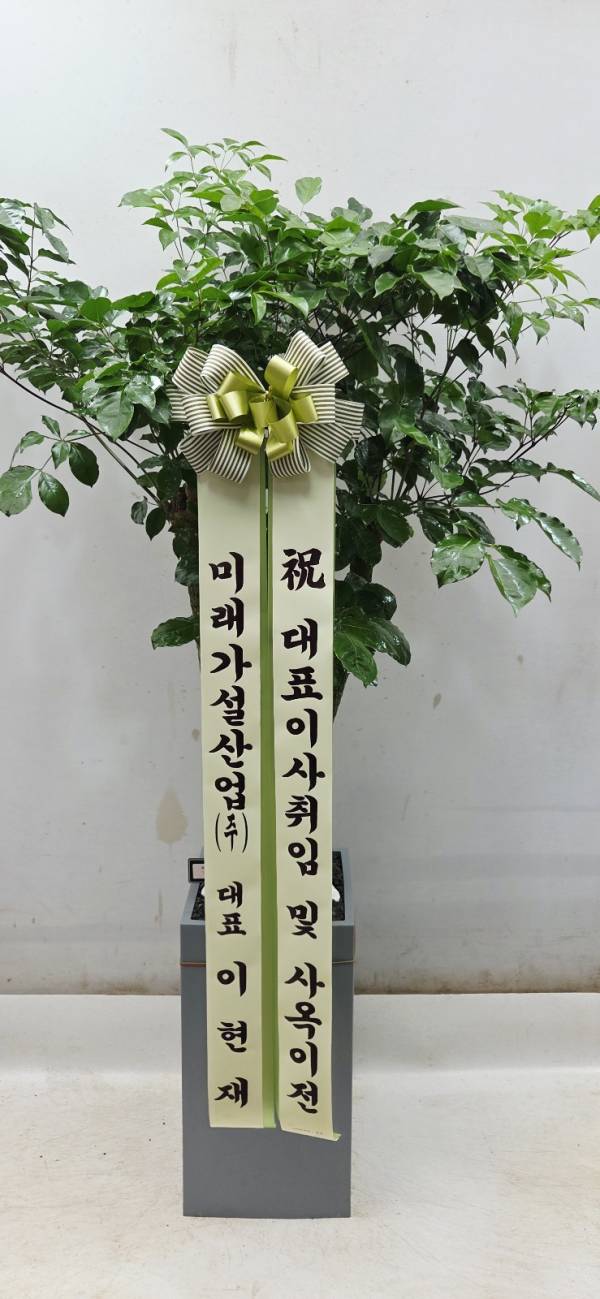 祝 대표이사취임 및 사옥이전
미래가설산업(주) 대표 이현재